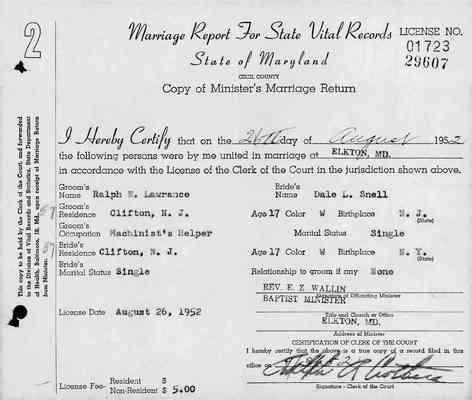 2
Marriage Report For State Vital Records
LICENSE NO.
01723
29607
State of Maryland
CECIL COUNTY
Copy of Minister's Marriage Return
I Hereby Certify that on the 26th day of August 1952
the following persons were by me united in marriage at ELKTON, MD.
in accordance with the License of the Clerk of the Court in the jurisdiction shown above.
Groom's Name Ralph E. Lawrance Bride's Name Dale L. Snell
Groom's Residence Clifton, N. J. Age 17 Color W Birthplace N. J. (State)
Groom's Occupation Machinist's Helper Marital Status Single
Bride's Residence Clifton, N. J. Age 17 Color W Birthplace N. Y. (State)
Bride's Marital Status Single Relationship to groom if any None
REV. E. Z WALLIN
Signature of Officiating Minister
BAPTIST MINISTER
License Date August 26, 1952
Title and Church or Office
ELKTON, MD.
Address of Minister
CERTIFICATION OF CLERK OF THE COURT
I hereby certify that the above is a true copy of a record filed in this
office on
Signature - Clerk of the Court
License Fee- Resident $
Non-Resident $ 5.00
This copy to be held by the Clerk of the Court, and forwarded
to the Division of Vital Records and Statistics, State Department
of Health, Baltimore, 18, Md., upon receipt of Marriage Return
from Minister.